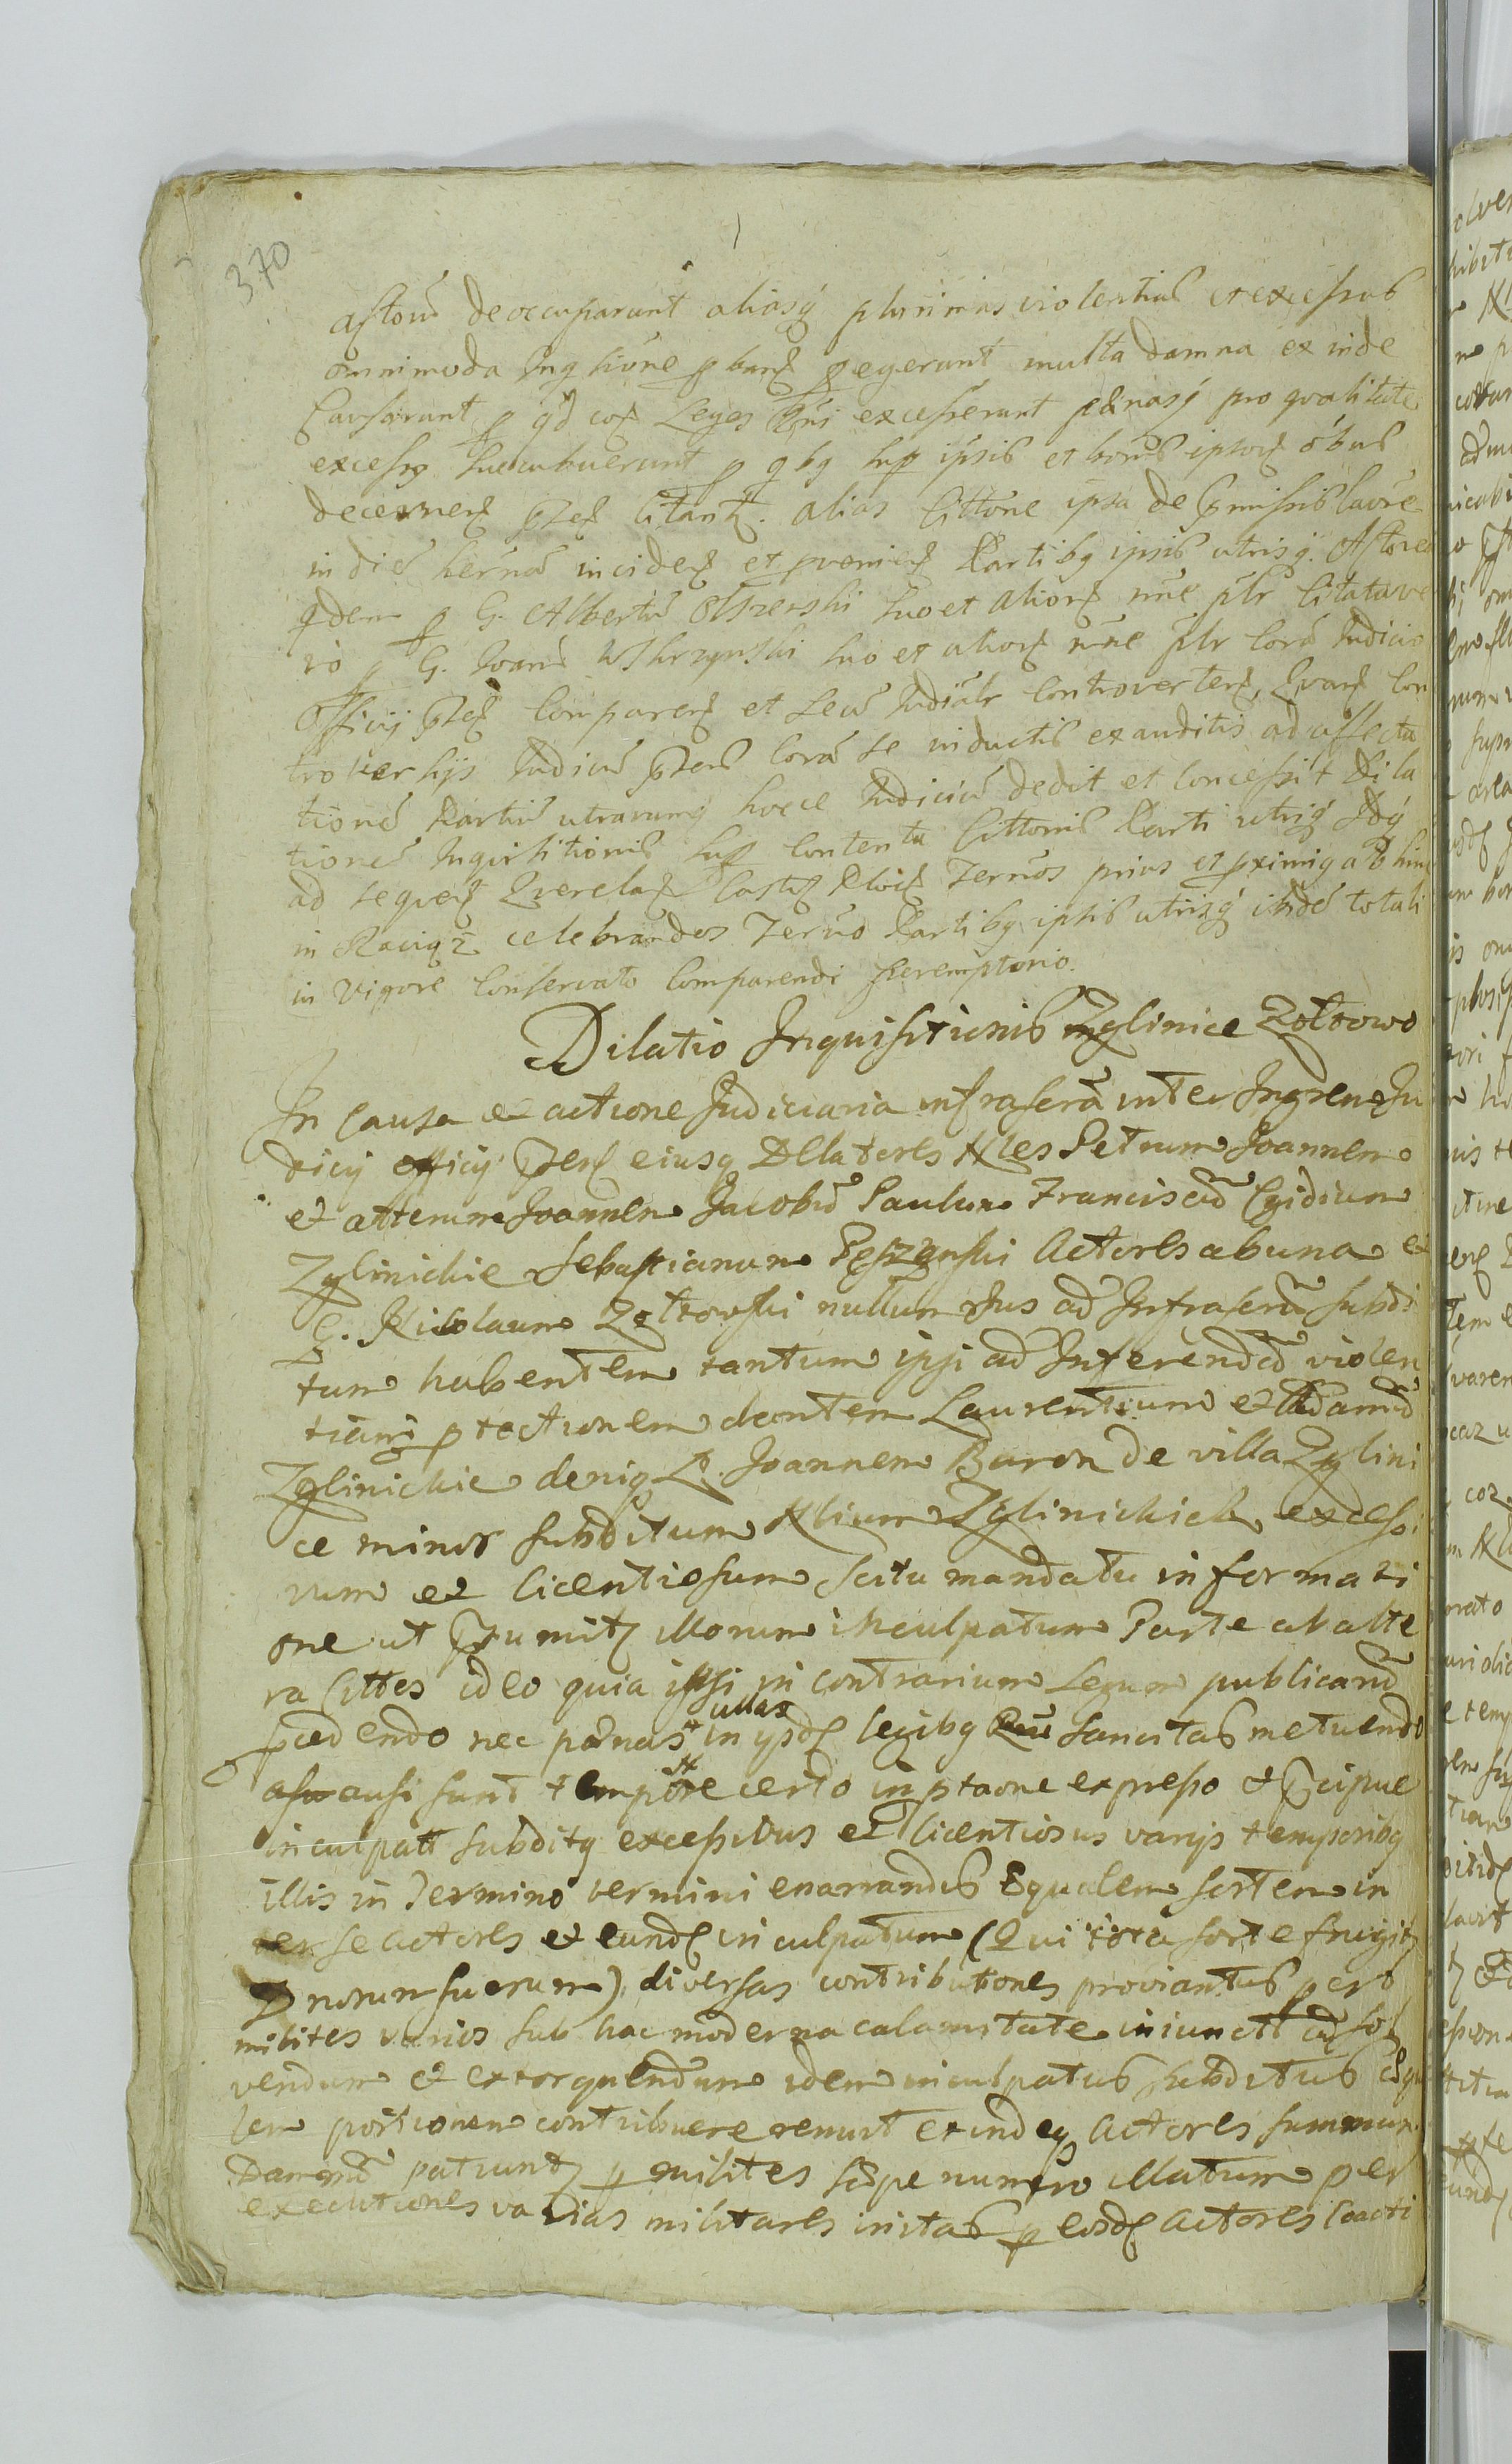 370
Actorũ deoccuparunt aliasq plurimas violentias et excessus
omnimoda Inq tione pband pegerunt multa damna ex inde
Causarunt p qd eos Leges Rni excesserunt pænasq pro qualitate
excessg succubuerunt p qbg sup ipsis et bonis ipsor oibus
decernend pñs citantr. alias Cittõne ipsa de pmissis latore
in die hernã inciden et pvenien Partibg ipsis utrisq. Actores
qdem p G. Albertũ Olszewski suo et alior nñe plr Citata ve
ro p G. Joanẽ Wskrzynski suo et alior nñe plr Corã Iudicio
Officij pñs Comparen et sese Iudialr Controverten, Quar Con
troversijs Iudiciũ pñs Corã se inductis exauditis ad affecta
tionẽ Partiũ utrarumq hocce Iudiciũ dedit et Concessit Dila
tionẽ Inquisitionis sup Contenta Cittonis Parti utriq Idq
ad sequen Querelar Castr Ploc Ternõs prius et pximig ab hinc
in Raciąz celebrandos Terno Partibg ipsis utrisq ibidẽ totali
in Vigore Conservato Comparendi peremptorio.
Dilatio Inquisitionis Zglinice Zołtowo
In Causa et actione Judiciaria infrascrã inter Ingren Ju
dicij officij pñs eiusq Dellatores Nles Petrum Joannem
et alterum Joannem Jacobũ Paulum Franciscũ Egidium
Zglinickie Sebastianum Pęszynski Actores ab una et
G. Nicolaum Zołtowski nullum Jus ad Infrascrũ subdi
tum habentem tantum ipsi ad Inferendã violen
tiam ptectionem dantem Laurentium et Adamũ
Zglinickie deniq L. Joannem Baron de villa Zglini
ce minor subditum Nlium Zglinickich excessi
vum et licentiosum scitu mandatu informati
one ut pũmitr illorum inculpatum Parte ab alte
ra Cittes ideo quia ipsi in contrarium Legum publicarũ
pcedendo nec pænas ullas in ysdem legibg Rni sancitas metuendo
ausi sunt tempore certo in ptaone expresso et pcipue
inculpatt subditg excessivus et licentiosus varijs temporibg
illis in Termino vermini enarrandis Equalem sortem in
ter se actores et eundem inculpatum (Qui tota sorte frugitr
Dnorum suorum) diversas contributiones proviantus per
milites varios sub hac moderna calamitate iniunctt ad sol
vendum et extorquendum idem inculpatus subditus Equa
lem portionem contribuere renuit ex indeq Actores summum
Damnũ patiuntr p milites sæpe numero illatum per
executiones varias militares initas p eosdem Actores Coacti